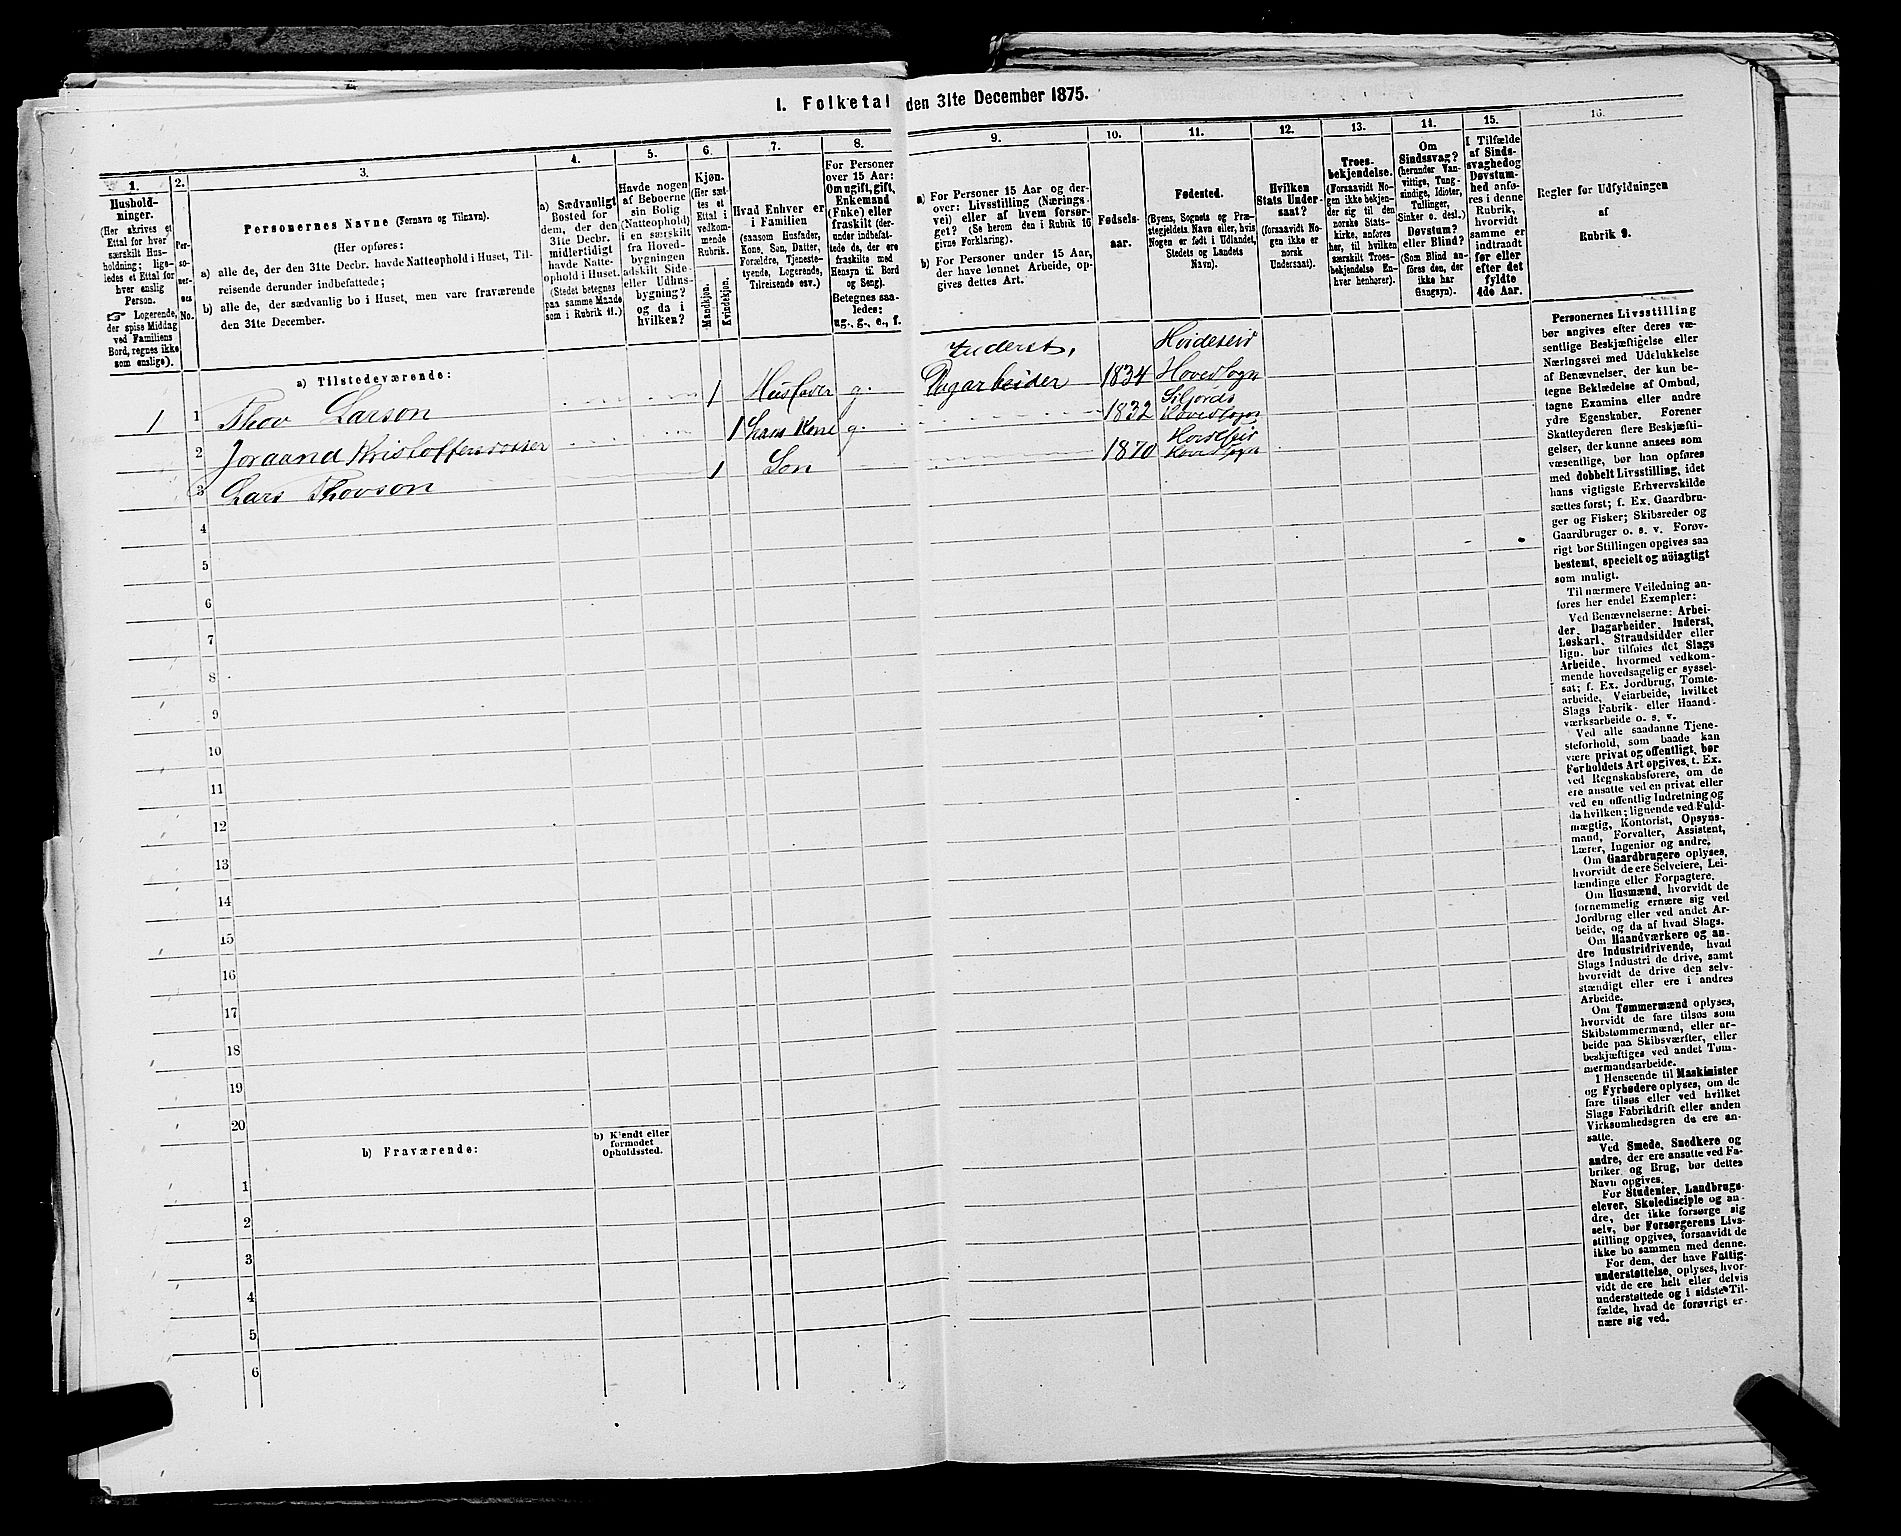 I. Folketal den 31te December 1875.
1.
Hushold-
ninger.
(Her skrives et
Ettal for hver
særskilt Hus-
holdning; lige-
ledes et Ettal for
hver enslig
Person.
☞ Logerende,
der spise Middag
ved Familiens
Bord, regnes ikke
som enslige).
2.
Per-
so-
ner-
nes
No.
3.
Personernes Navne (Fornavn og Tilnavn).
(Her opføres:
a) alle de, der den 31te Decbr. havde Natteophold i Huset, Til-
reisende derunder indbefattede;
b) alle de, der sædvanlig bo i Huset, men vare fraværende
den 31te December.
4.
a) Sædvanligt
Bosted for
dem, der den
31te Decbr.
midlertidigt
havde Natte-
ophold i Huset.
(Stedet betegnes
paa samme Maade
som i Rubrik 11.)
5.
Havde nogen
af Beboerne
sin Bolig
(Natteophold)
i en særskilt
fra Hoved-
bygningen
adskilt Side-
eller Udhus-
bygning?
og da i
hvilken?
6.
Kjøn.
(Her sæt-
tes et
Ettal i
vedkom-
mende
Rubrik.
Mandkjøn.
Kvindekjøn.
7.
Hvad Enhver er
i Familien
(saasom Husfader,
Kone, Søn, Datter,
Forældre, Tjeneste-
tyende, Logerende,
Tilreisende osv.)
8.
For Personer
over 15 Aar:
Om ugift, gift,
Enkemand
(Enke) eller
fraskilt (der-
under indbefat-
tede de, der ere
fraskilte med
Hensyn til Bord
og Seng).
Betegnes saa-
ledes:
ug., g., e., f.
9.
a) For Personer 15 Aar og der-
over: Livsstilling (Nærings-
vei) eller af hvem forsør-
get? (Se herom den i Rubrik 16
givne Forklaring).
b) For Personer under 15 Aar,
der have lønnet Arbeide, op-
gives dettes Art.
10.
Fødsels-
aar.
11.
Fødested.
(Byens, Sognets og Præ-
stegjeldets Navn eller, hvis
Nogen er født i Udlandet,
Stedets og Landets
Navn).
12.
Hvilken
Stats Under-
saat?
(forsaavidt No-
gen ikke er
norsk
Undersaat).
13.
Troes-
bekjendelse.
(Forsaavidt No-
gen ikke bekjen-
der sig til den
norske Stats-
kirke, anføres
her, til hvilken
særskilt Troes-
bekjendelse En-
hver henhører).
14.
Om
Sindssvag?
(herunder Van-
vittige, Tung-
sindige, Idioter,
Tullinger,
Sinker o. desl.)
Døvstum?
eller Blind?
(Som Blind an-
føres den, der
ikke har
Gangsyn).
15.
I Tilfælde
af Sinds-
svaghed og
Døvstum-
hed anfø-
res i denne
Rubrik,
hvorvidt
samme er
indtraadt
før eller
efter det
fyldte
4de Aar.
16.
Regler for Udfyldningen
af
Rubrik 9.
a) Tilstedeværende:
1 1 Thov Larson 1 Husfader g. Inderst, Dagarbeider 1834 Hvideseid Hovedsogn
2 Joraand Kristoffersdatter 1 hans Kone g. 1832 Siljords Hovedsogn
3 Lars Thovson 1 Søn 1870 Hvideseid Hovedsogn
4
5
6
7
8
9
10
11
12
13
14
15
16
17
18
19
20
b) Fraværende:
b) Kjendt eller
formodet
Opholdssted.
1
2
3
4
5
6
Personernes Livsstilling
bør angives efter deres væ-
sentlige Beskjæftigelse eller
Næringsvei med Udelukkelse
af Benævnelser, der kun be-
tegne Beklædelse af Ombud,
tagne Examina eller andre
ydre Egenskaber. Forener
Skatteyderen flere Beskjæfti-
gelser, der kunne ansees som
væsentlige, bør han opføres
med dobbelt Livsstilling, idet
hans vigtigste Erhvervskilde
sættes først; f. Ex. Gaardbru-
ger og Fisker; Skibsreder og
Gaardbruger o. s. v. Forøv-
rigt bør Stillingen opgives saa
bestemt, specielt og nöiagtigt
som muligt.
Til nærmere Veiledning an-
føres her endel Exempler:
Ved Benævnelserne: Arbei-
der, Dagarbeider, Inderst,
Løskarl, Strandsidder eller
lign. bør tilføies det Slags
Arbeide, hvormed vedkom-
mende hovedsagelig er syssel-
sat; f. Ex. Jordbrug, Tomte-
arbeide, Veiarbeide, hvilket
Slags Fabrik- eller Haand-
værksarbeide o. s. v.
Ved alle saadanne Tjene-
steforhold, som baade kan
være privat og offentligt, bør
Forholdets Art opgives, f. Ex.
ved Regnskabsførere, om de
ere ansatte ved en privat eller
ved en offentlig Indretning og
da hvilken; lignende ved Fuld-
mægtig, Kontorist, Opsyns-
mand, Forvalter, Assistent,
Lærer, Ingeniør og andre.
Om Gaardbrugere oplyses,
hvorvidt de ere Selveiere, Lei-
lændinge eller Forpagtere.
Om Husmænd, hvorvidt de
fornemmelig ernære sig ved
Jordbrug eller ved andet Ar-
beide, og da af hvad Slags.
Om Haandværkere og an-
dre Industridrivende, hvad
Slags Industri de drive, samt
hvorvidt de drive den selv-
stændigt eller ere i andres
Arbeide.
Om Tømmermænd oplyses,
hvorvidt de fare tilsøs som
Skibstømmermænd, eller ar-
beide paa Skibsværfter, eller
beskjæftiges ved andet Tøm-
mermandsarbeide.
I Henseende til Maskinister
og Fyrbødere oplyses, om de
fare tilsøs eller ved hvilket
Slags Fabrikdrift eller anden
Virksomhedsgren de ere an-
satte.
Ved Smede, Snedkere og
andre, der ere ansatte ved Fa-
briker og Brug, bør dettes
Navn opgives.
For Studenter, Landbrugs-
elever, Skoledisciple og an-
dre, der ikke forsørge sig
selv, bør Forsørgerens Livs-
stilling opgives, forsaavidt de
ikke bo sammen med denne.
For dem, der have Fattig-
understøttelse, oplyses, hvor-
vidt de ere helt eller delvis
understøttede og i sidste Til-
fælde, hvad de forøvrigt er-
nære sig ved.